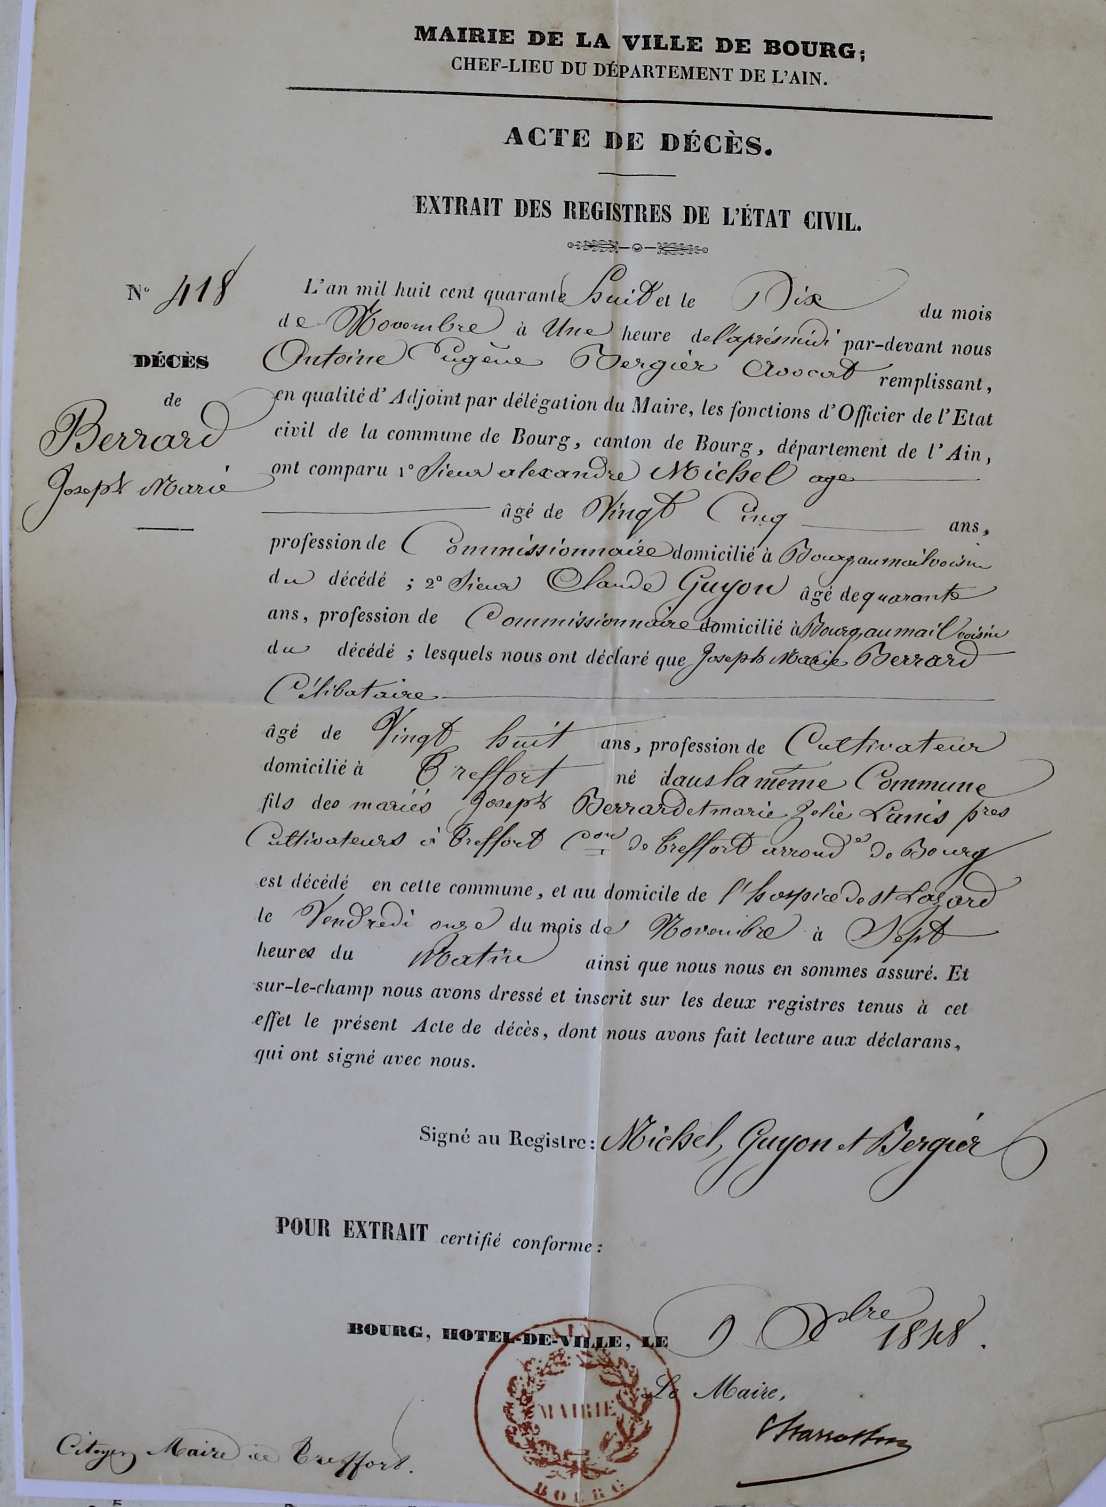 MAIRIE DE LA VILLE DE BOURG;
CHEF-LIEU DU DÉPARTEMENT DE L'AIN.
ACTE DE DÉCÈS.
EXTRAIT DES REGISTRES DE L'ÉTAT CIVIL.
N° 418
DÉCÈS
de
Berrard
Joseph Marie
L'an mil huit cent quarante huit et le Dix du mois
de Novembre à Une heure de l'aprésmidi par-devant nous
Antoine Eugène Bergier Avocat remplissant,
en qualité d'Adjoint par délégation du Maire, les fonctions d'Officier de l'Etat
civil de la commune de Bourg, canton de Bourg, département de l'Ain,
ont comparu 1° Sieur alexandre Michel age
âgé de Vingt Cinq ans,
profession de Commissionnaire domicilié à Bourg au mail voisin
du décédé ; 2° Sieur Claude Guyon âgé de quarante
ans, profession de Commissionnaire domicilié à Bourg, au mail voisin
du décédé ; lesquels nous ont déclaré que Joseph Marie Berrard
Célibataire
âgé de Vingt huit ans, profession de Cultivateur
domicilié à Treffort né dans la même Commune
fils des mariés Joseph Berrard et marie Lunis
Cultivateurs à Treffort Con de Treffort arrondt de Bourg
est décédé en cette commune, et au domicile de l'hospice de St Lazard
le Vendredi onze du mois de Novembre à Sept
heures du Matin ainsi que nous nous en sommes assuré. Et
sur-le-champ nous avons dressé et inscrit sur les deux registres tenus à cet
effet le présent Acte de décès, dont nous avons fait lecture aux déclarans,
qui ont signé avec nous.
Signé au Registre: Michel, Guyon et Bergier
POUR EXTRAIT certifié conforme :
BOURG, HOTEL-DE-VILLE, LE 9 Xbre 1848.
Le Maire,
MAIRIE
BOURG
Citoyen Maire de Treffort.